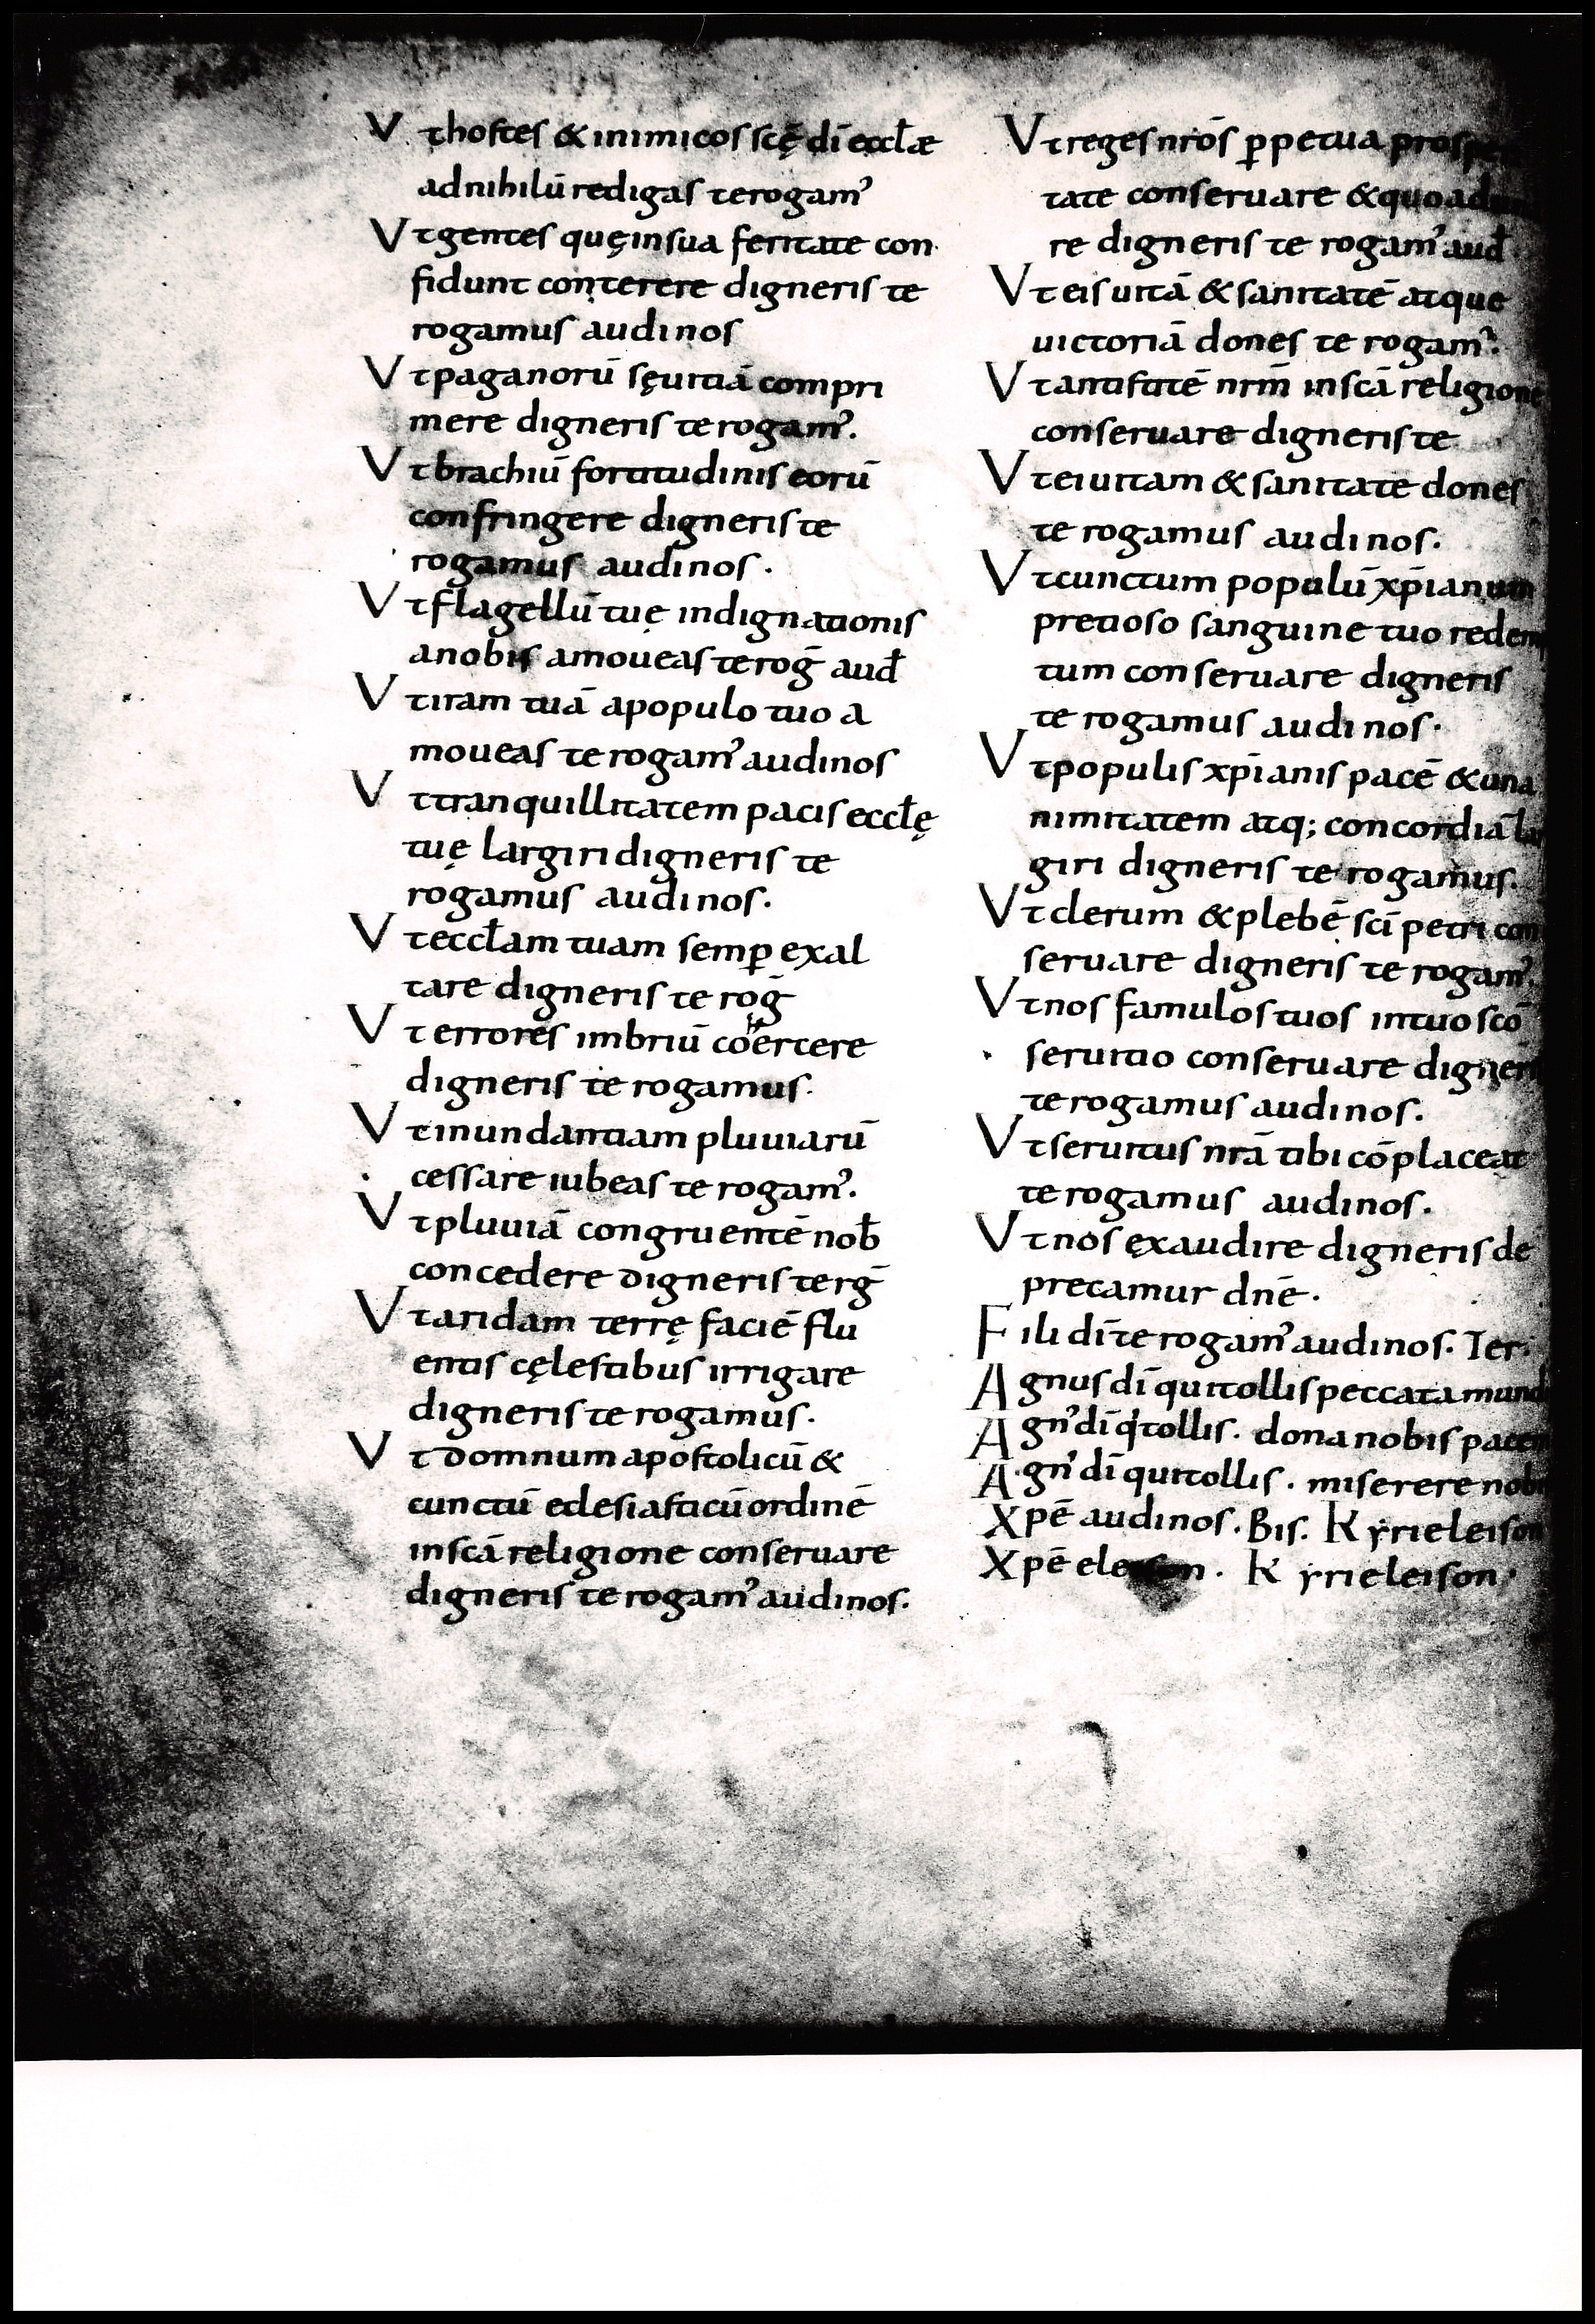 Vt hostes & inimicos scę̄ dī eccłæ
ad nihilū redigas te rogam᾽
Vt gentes quę in sua feritate con
fidunt conterere digneris te
rogamus audi nos
Vt paganorū sęuitiā compri
mere digneris te rogam᾽.
Vt brachiū fortitudinis eorū
confringere digneris te
rogamus audi nos.
Vt flagellū tuę indignationis
a nobis amoueas te roḡ aud̄
Vt iram tuā a populo tuo a
moueas te rogam᾽ audi nos
Vt tranquillitatem pacis eccłę
tuę largiri digneris te
rogamus audi nos.
Vt eccłam tuam semꝑ exal
tare digneris te roḡ
Vt errores imbriū cohercere
digneris te rogamus.
Vt inundantiam pluuiarū
cessare iubeas te rogam᾽.
Vt pluuiā congruentē nob̄
concedere digneris te rḡ
Vt aridam terrę faciē flu
entis cęlestibus irrigare
digneris te rogamus.
Vt domnum apostolicū &
cunctū eclesiasticū ordinē
in scā religione conseruare
digneris te rogam᾽ audi nos.
Vt reges nrōs ꝑpetua
tate conseruare &
re digneris te rogam᾽ aud̄
Vt eis uitā & sanitatē atque
uictoriā dones te rogam᾽.
Vt antistitē nrm̄ in scā religione
conseruare digneris te
Vt ei uitam & sanitate dones
te rogamus audi nos.
Vt cunctum populū xp̄ianum
pretioso sanguine tuo redem
tum conseruare digneris
te rogamus audi nos.
Vt populis xp̄ianis pacē & una
nimitatem atq; concordiā
giri digneris te rogamus.
Vt clerum & plebē scī petri con
seruare digneris te rogam᾽.
Vt nos famulos tuos in tuo scō
seruitio conseruare digneris
te rogamus audi nos.
Vt seruitus nrā tibi cōplaceat
te rogamus audi nos.
Vt nos ęxaudire digneris de
precamur dnē.
Fili dī te rogam᾽ audi nos. Ter.
Agnus dī qui tollis peccata mundi
Agn᾽ dī q̇ tollis. dona nobis pacem
Agn᾽ dī qui tollis. miserere nobis
Xpē audi nos. Bis. Kyrieleison
Xpē eleison. Kyrieleison.